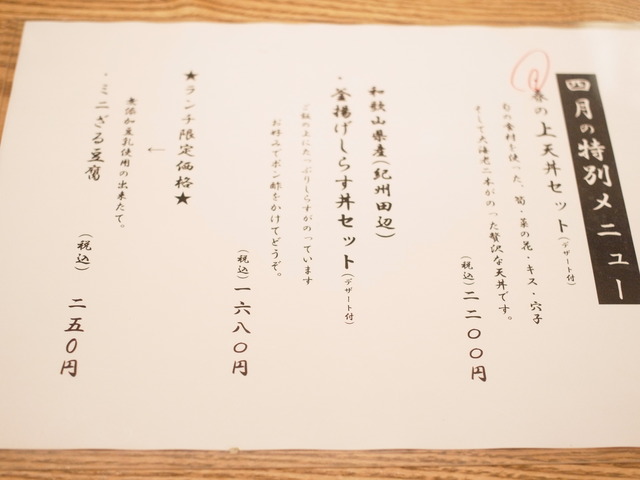 四月の特別メニュー
春の上天丼セット(デザート付)
旬の食材を使った、筍・菜の花・キス・穴子
そして大海老二本がのった贅沢な天丼です。
(税込)二二〇〇円
和歌山県産(紀州田辺)
・釜揚げしらす丼セット(デザート付)
ご飯の上にたっぷりしらすがのっています
お好みでポン酢をかけてどうぞ。
(税込)一六八〇円
★ランチ限定価格★
↓
無添加豆乳使用の出来たて。
・ミニざる豆腐
(税込)二五〇円